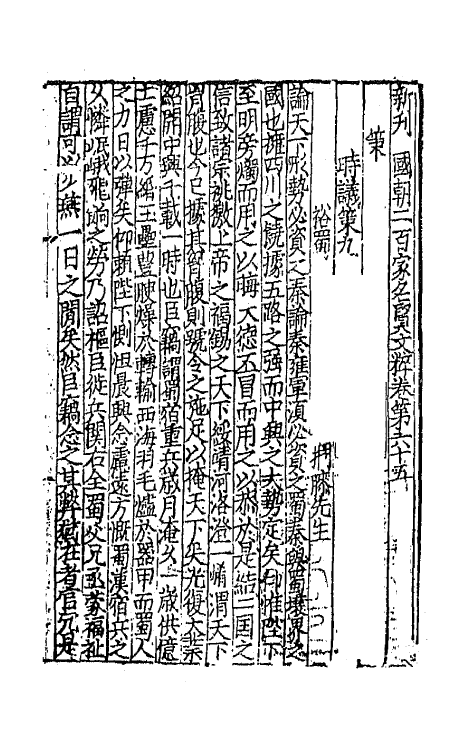 新刊國朝二百家名賢文粹卷第六十五
策
時議策九
裕蜀
論天下形勢必資之秦論秦雍軍湏必資之蜀秦與蜀壤界之
國也擁四川之饒據五路之强而中興之大勢定矣仰惟陛下
至明旁燭而用之以晦大德丕冒而用之以恭於是結二国之
信致諸宗祧徼上帝之福錫之天下經靖河洛澄一崤渭天下
胷腹也今已據其胷腹則號令之施足以掩天下矣光復大業
紹開中興千載一時也臣竊謂蜀宿重兵歲月淹久一歲供億
士慮千万緡玉壘豐腴燥於轉輸西海羽毛爐於器甲而蜀人
之力日以殫矣仰頼陛下惻怛晨興念慮遠方慨蜀漢宿兵之
久憐岷峨飛輓之勞乃詔樞臣徙兵関右全蜀父兄丞蒙福祉
自謂可以少無一日之間矣然臣竊念之其弊猶在者官冗是